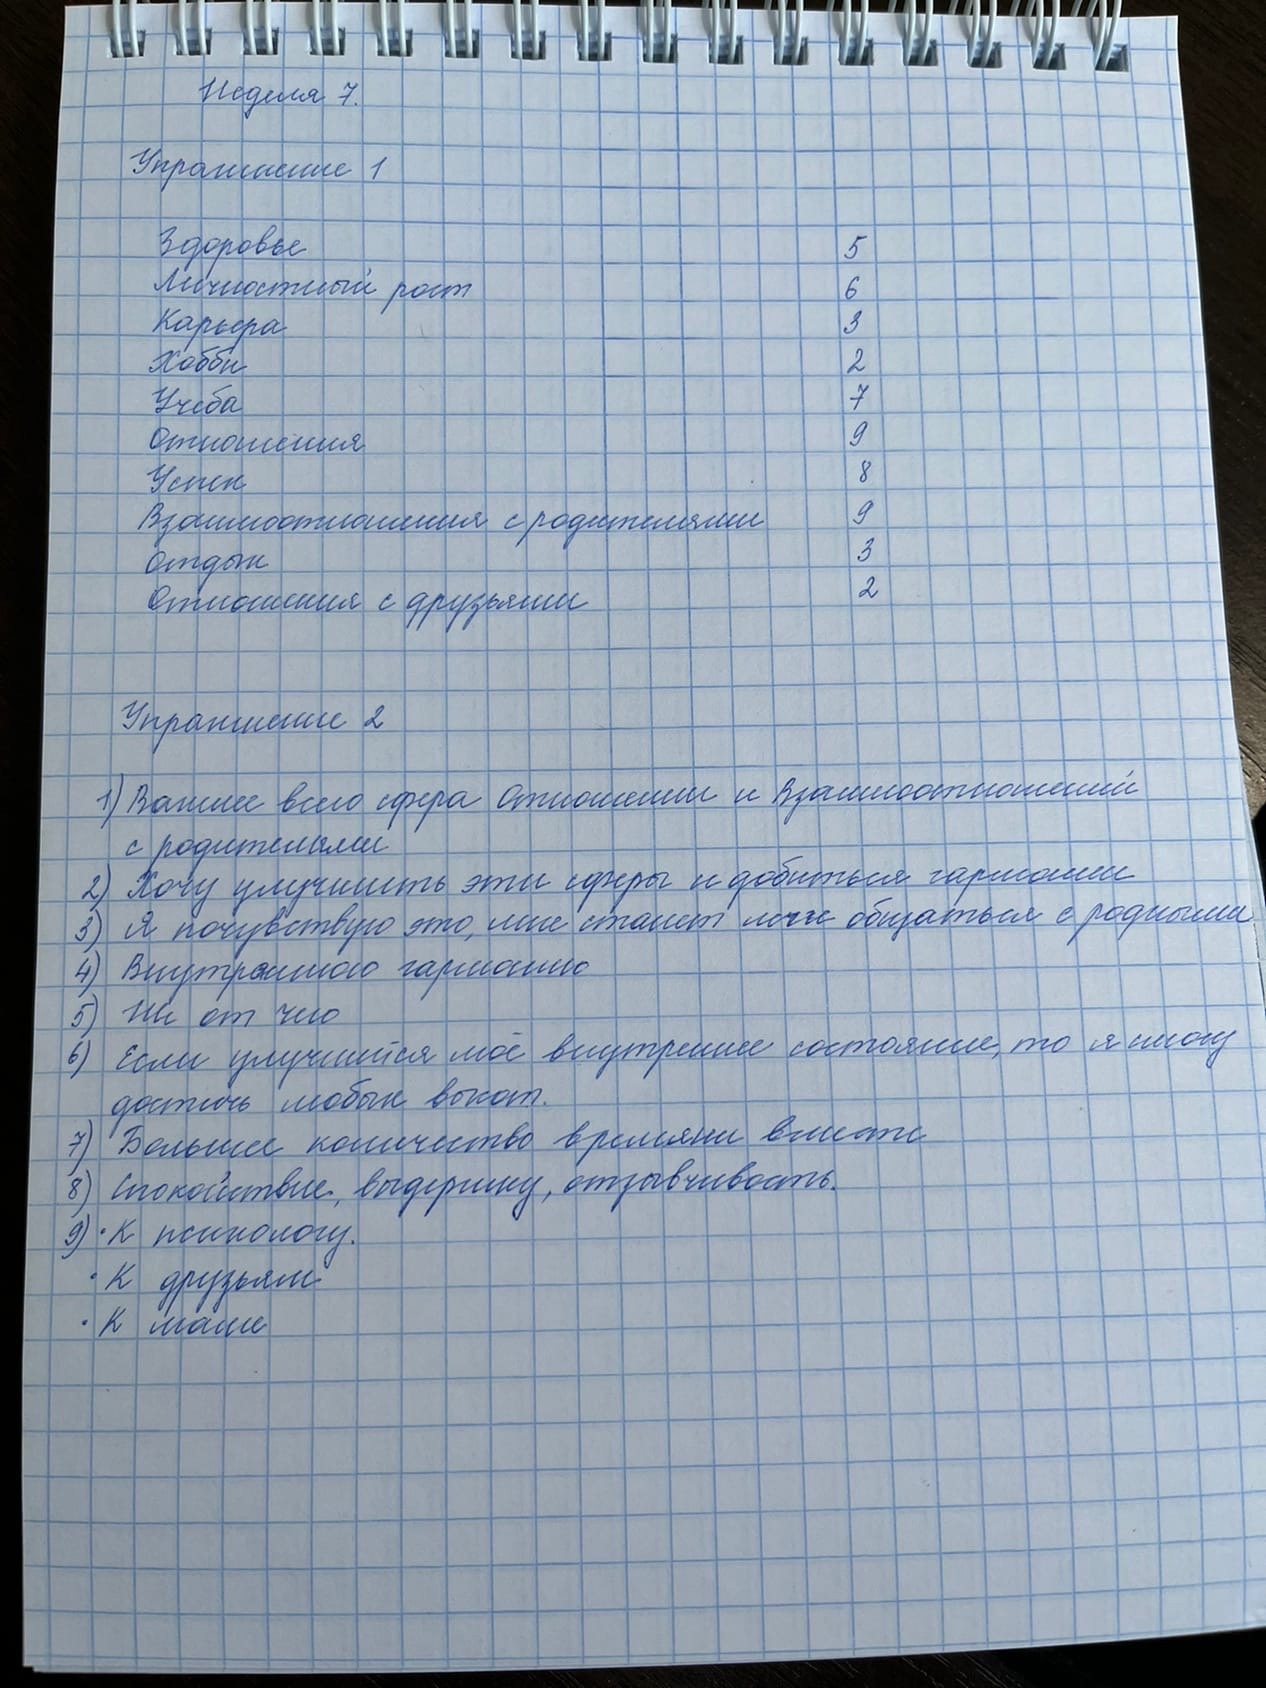 Неделя 7.
Упражнение 1
Здоровье 5
Личностный рост 6
Карьера 3
Хобби 2
Учеба 7
Отношения 9
Успех 8
Взаимоотношения с родителями 9
Отдых 3
Отношения с друзьями 2
Упражнение 2
1) Важнее всего сфера Отношении и Взаимоотношений
с родителями
2) Хочу улучшить эти сферы и добиться гармонии
3) Я почувствую это, мне станет легче общаться с родными
4) Внутреннюю гармонию
5) Ни от чего
6) Если улучшится моё внутреннее состояние, то я смогу
достичь любых высот.
7) Большее количество времяни вместе
8) Спокойствие, выдержку, отзывчивость.
9) • К психологу.
• К друзьям
• К маме